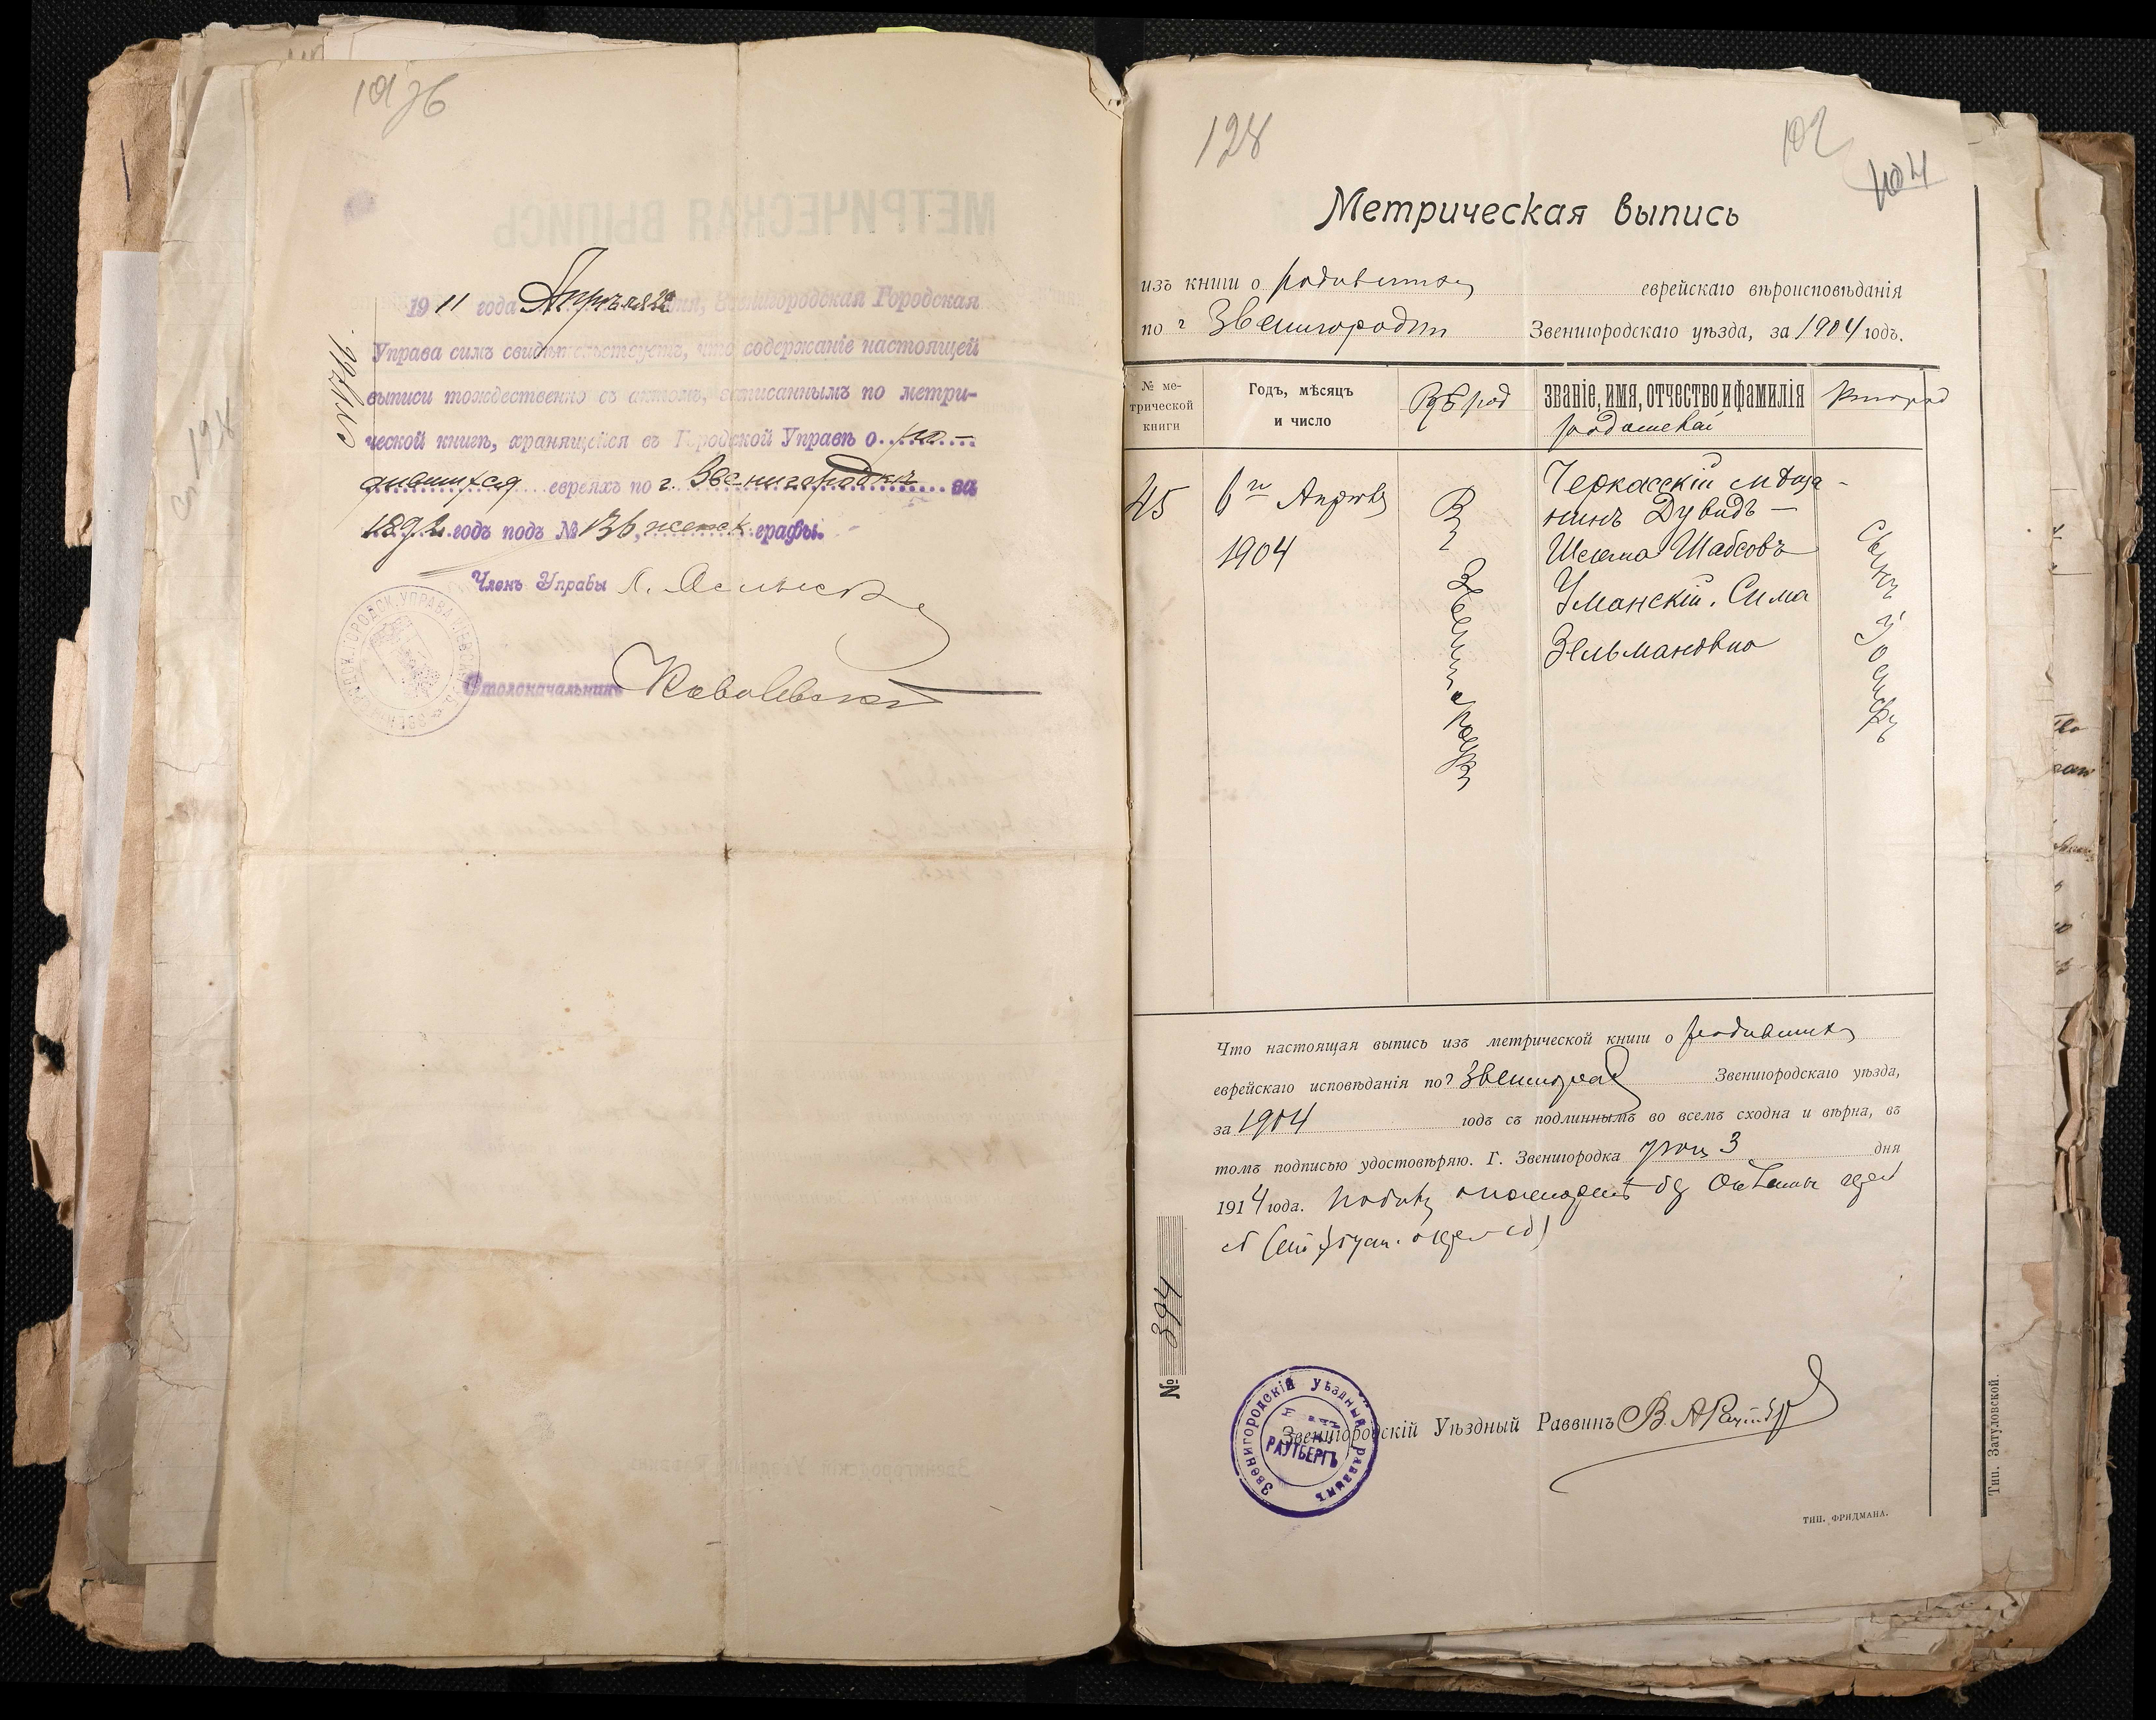 1911 года Апрѣля 29 дня, Звенигородская Городская
Управа симъ свидѣтельствуетъ, что содержаніе настоящей
выписи тождественно съ актомъ, записаннымъ по метри-
ческой книгѣ, хранящейся въ Городской Управѣ о ро-
дившихся евреяхъ по г. Звенигородкѣ за
1892 годъ подъ № 136, женск. графы.
Членъ Управы
Столоначальникъ
№ 1766.
128
102
104
Метрическая выпись
изъ книги о родившихся еврейскаго вѣроисповѣданія
по г Звенигородки Звенигородскаго уѣзда, за 1904 годъ.
№ ме-
трической
книги
Годъ, мѣсяцъ
и число
Гдѣ род
званіе, имя, отчество и фамилія
родителей
Кто род
45
6го Апрѣля
1904
В г Звенигородкѣ
Черкасскій мѣща-
нинъ Дувидъ —
Шлема Шабсовъ
Уманскій. Сима
Зельмановна
Сынъ Іосифъ
Что настоящая выпись изъ метрической книги о родившихся
еврейскаго исповѣданія по г Звенигородкѣ Звенигородскаго уѣзда,
за 1904 годъ съ подлиннымъ во всемъ сходна и вѣрна, въ
томъ подписью удостовѣряю. Г. Звенигородка 3 дня
1914 года.
№ 394
Звенигородскій Уѣздный Раввинъ
ЗВЕНИГОРОДСКІЙ УѢЗДНЫЙ РАВВИНЪ
РАУТБЕРГЪ
ТИП. ФРИДМАНА.
Тип. Затуловской.